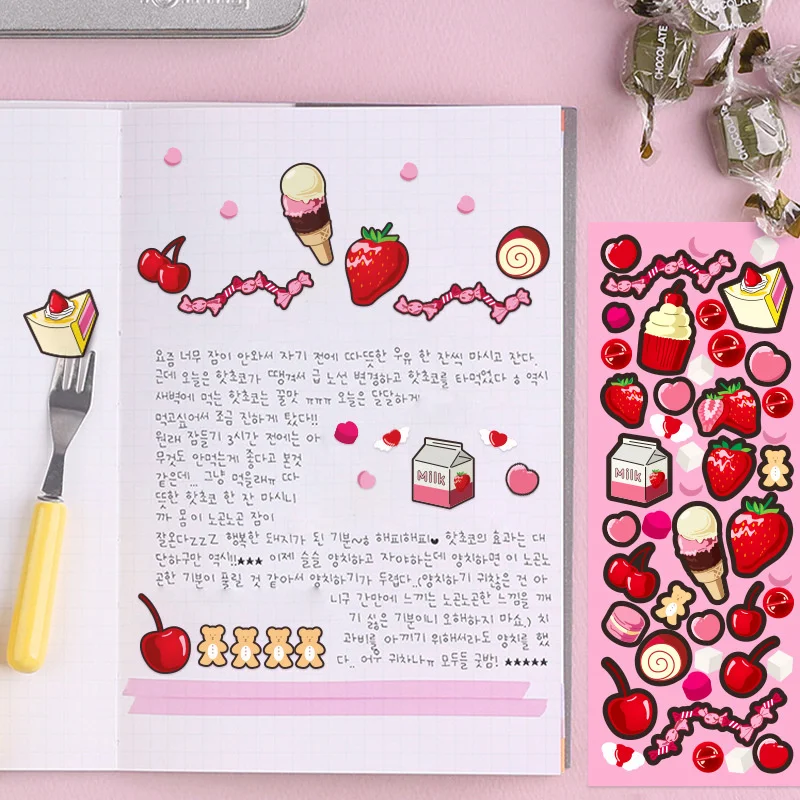 CHOCOLATE
CHOCOLATE
요즘 너무 잠이 안와서 자기 전에 따뜻한 우유 한 잔씩 마시고 잔다.
근데 오늘은 핫초코가 땡겨서 급 노선 변경하고 핫초코를 타먹었다 ㅎ 역시
새벽에 먹는 핫초코는 꿀맛 ㅠㅠㅠ 오늘은 달달하게
먹고싶어서 조금 진하게 탔다!!
원래 잠들기 3시간 전에는 아
무것도 안먹는게 좋다고 본것
같은데... 그냥 먹을래ㅠ 따
뜻한 핫초코 한 잔 마시니
까 몸이 노곤노곤 잠이
잘온다zzZ 행복한 돼지가 된 기분~! 해피해피♥ 핫초코의 효과는 대
단하구만 역시!!★★★ 이제 슬슬 양치하고 자야하는데 양치하면 이 노곤노
곤한 기분이 풀릴 것 같아서 양치하기가 두렵다..(양치하기 귀찮은 건 아
니구 간만에 느끼는 노곤노곤한 느낌을 깨
기 싫은 기분이니 오해하지 마쇼.) 치
과비를 아끼기 위해서라도 양치를 했
다.. 어우 귀차나ㅠ 모두들 굿밤! ★★★★★
Milk
Milk